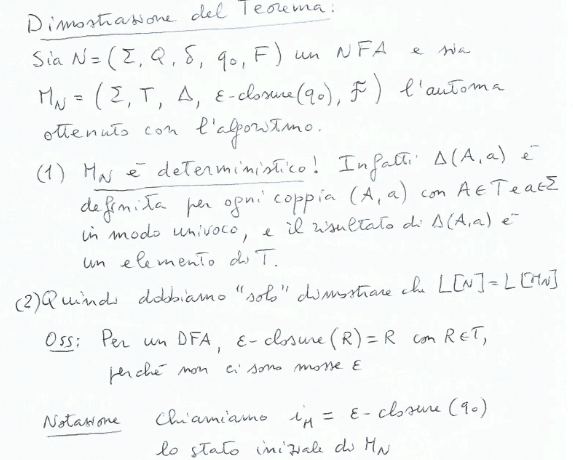 Dimostrazione del Teorema:
Sia N = (Σ, Q, δ, q₀, F) un NFA e sia
M_N = (Σ, T, Δ, ε-closure(q₀), ℱ) l'automa
ottenuto con l'algoritmo.
(1) M_N è deterministico! Infatti Δ(A,a) è
definita per ogni coppia (A, a) con A∈T e a∈Σ
in modo univoco, e il risultato di Δ(A,a) è
un elemento di T.
(2) Quindi dobbiamo "solo" dimostrare che L[N] = L[M_N]
Oss: Per un DFA, ε-closure(R) = R con R∈T,
perché non ci sono mosse ε
Notazione Chiamiamo i_M = ε-closure(q₀)
lo stato iniziale di M_N